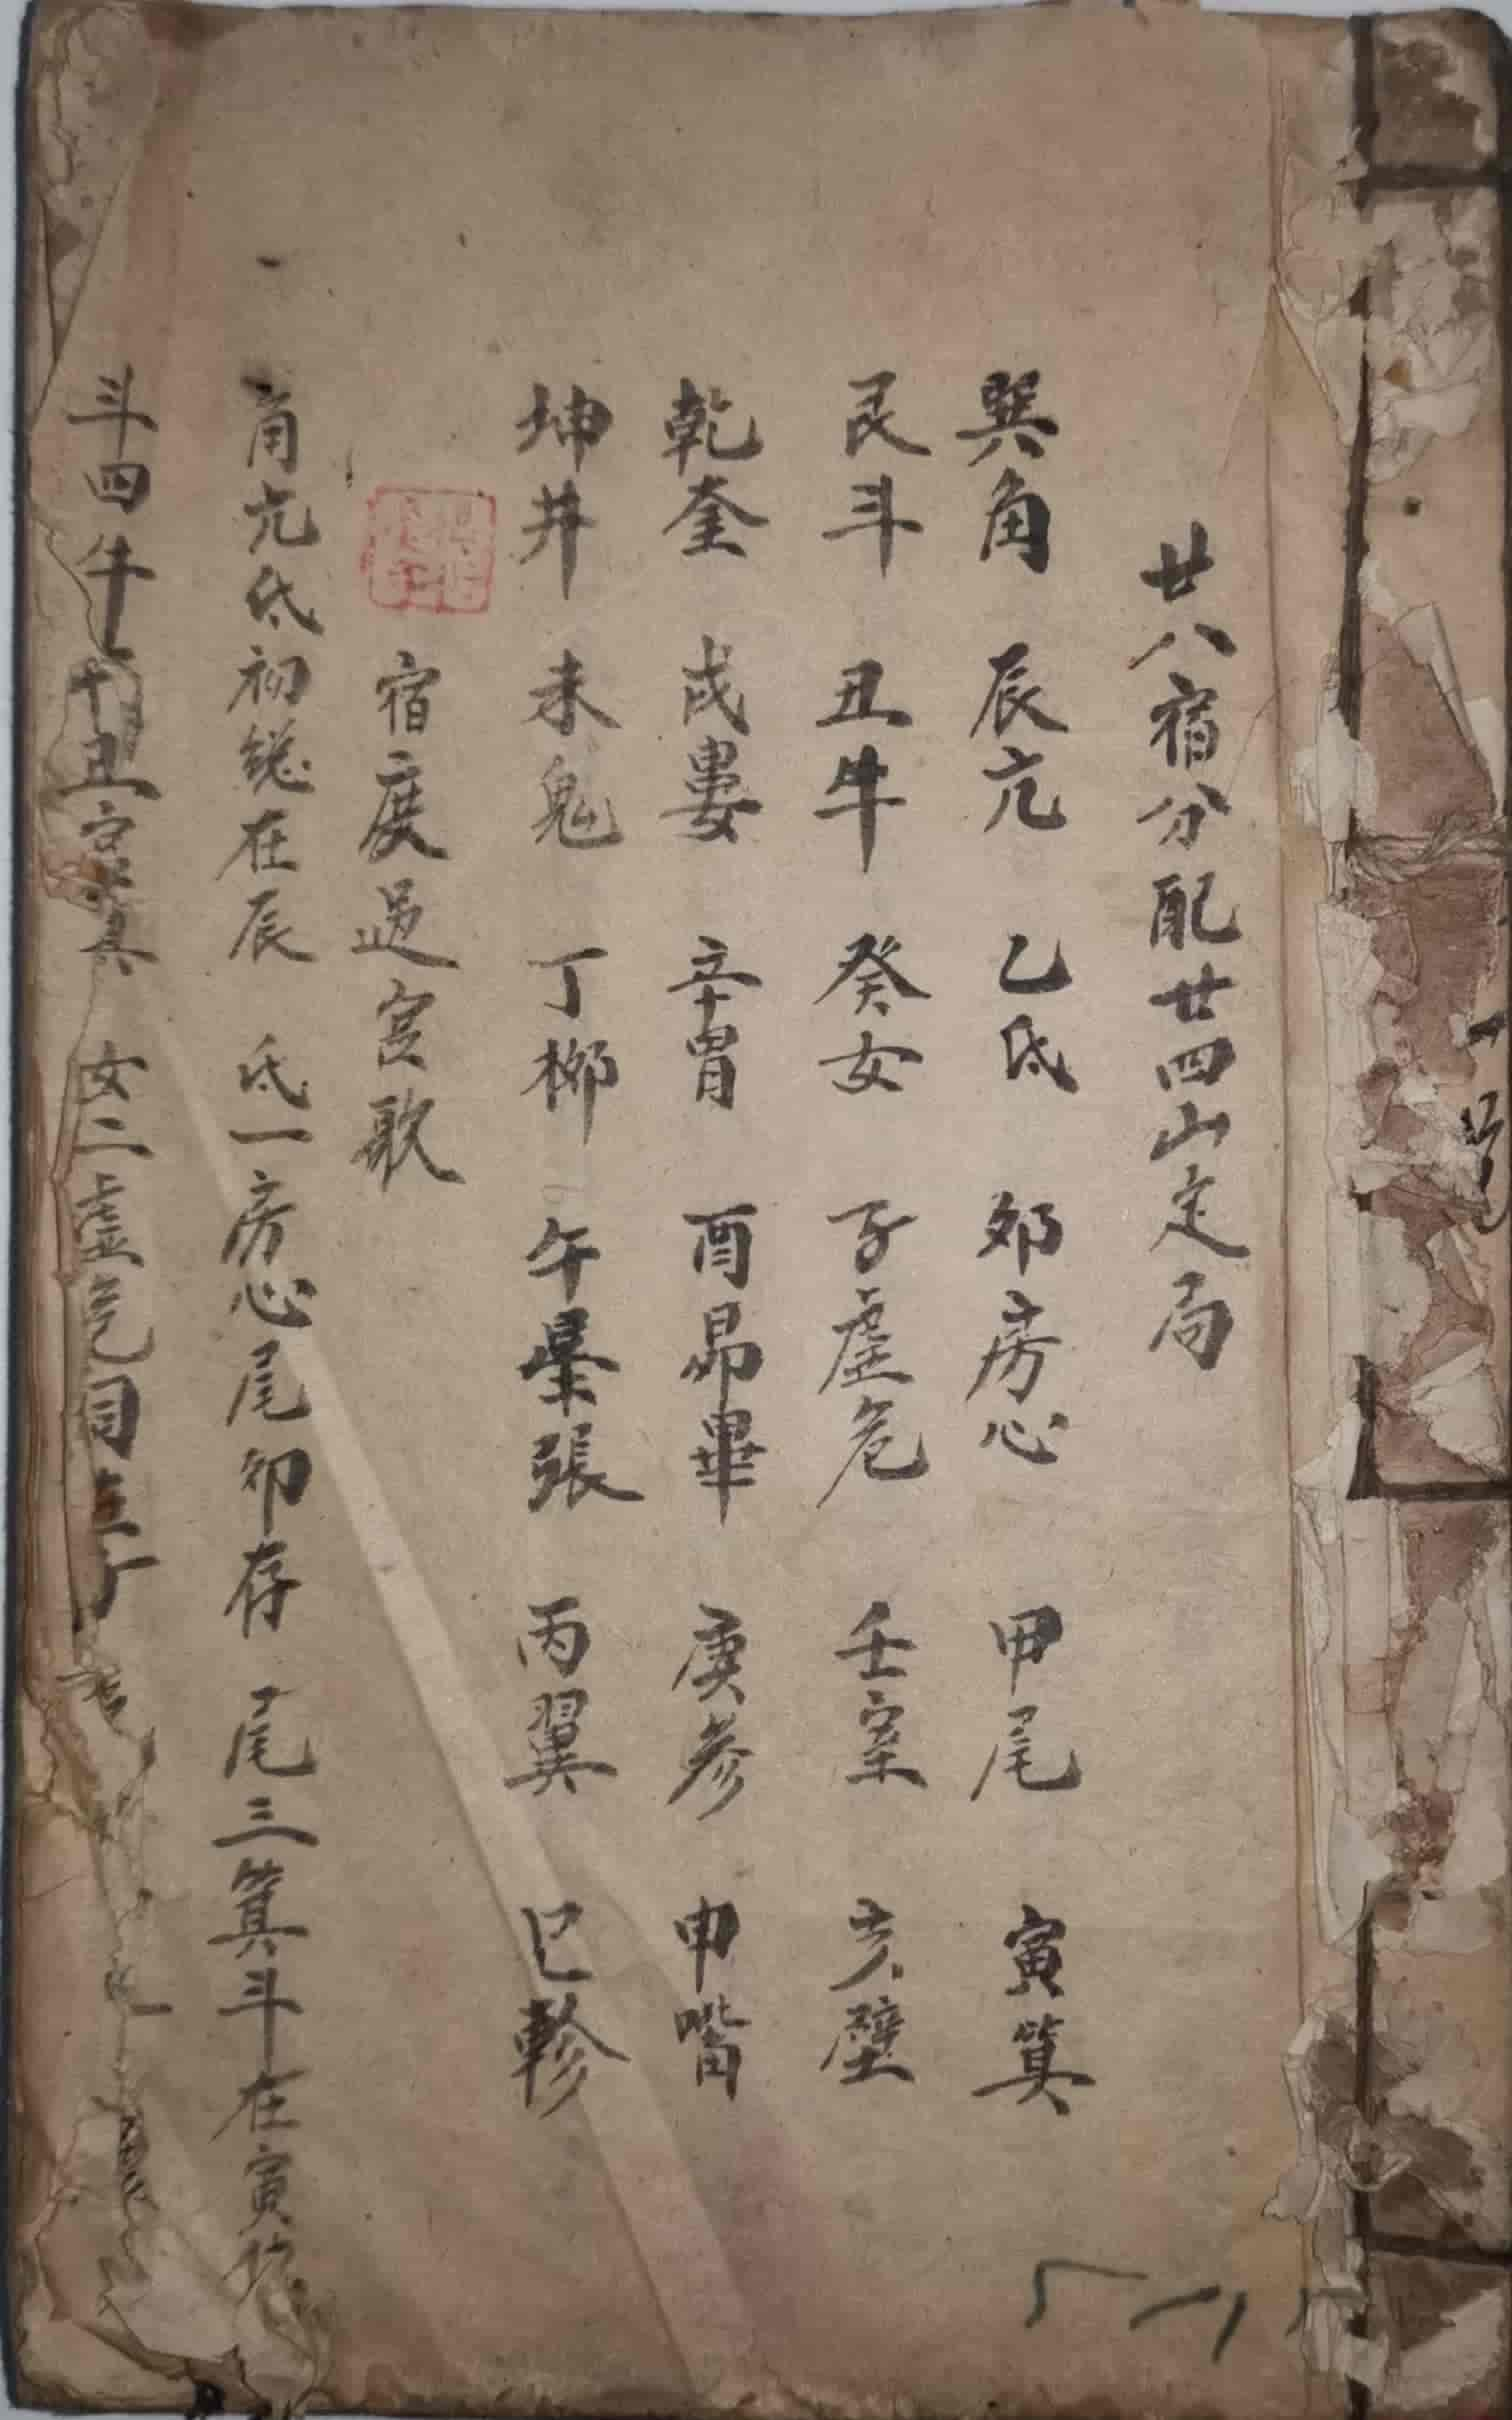 廿八宿分配廿四山定局
巽角 辰亢 乙氐 夘房心 甲尾 寅箕
艮斗 丑牛 癸女 子虛危 壬室 亥壁
乾奎 戌婁 辛胃 酉昴畢 庚參 申嘴
坤井 未鬼 丁柳 午星張 丙翼 巳軫
宿度过宮歌
角亢氐初総在辰 氐一房心尾夘存 尾三箕斗在寅
斗四牛 丑宮真 女二虛危同